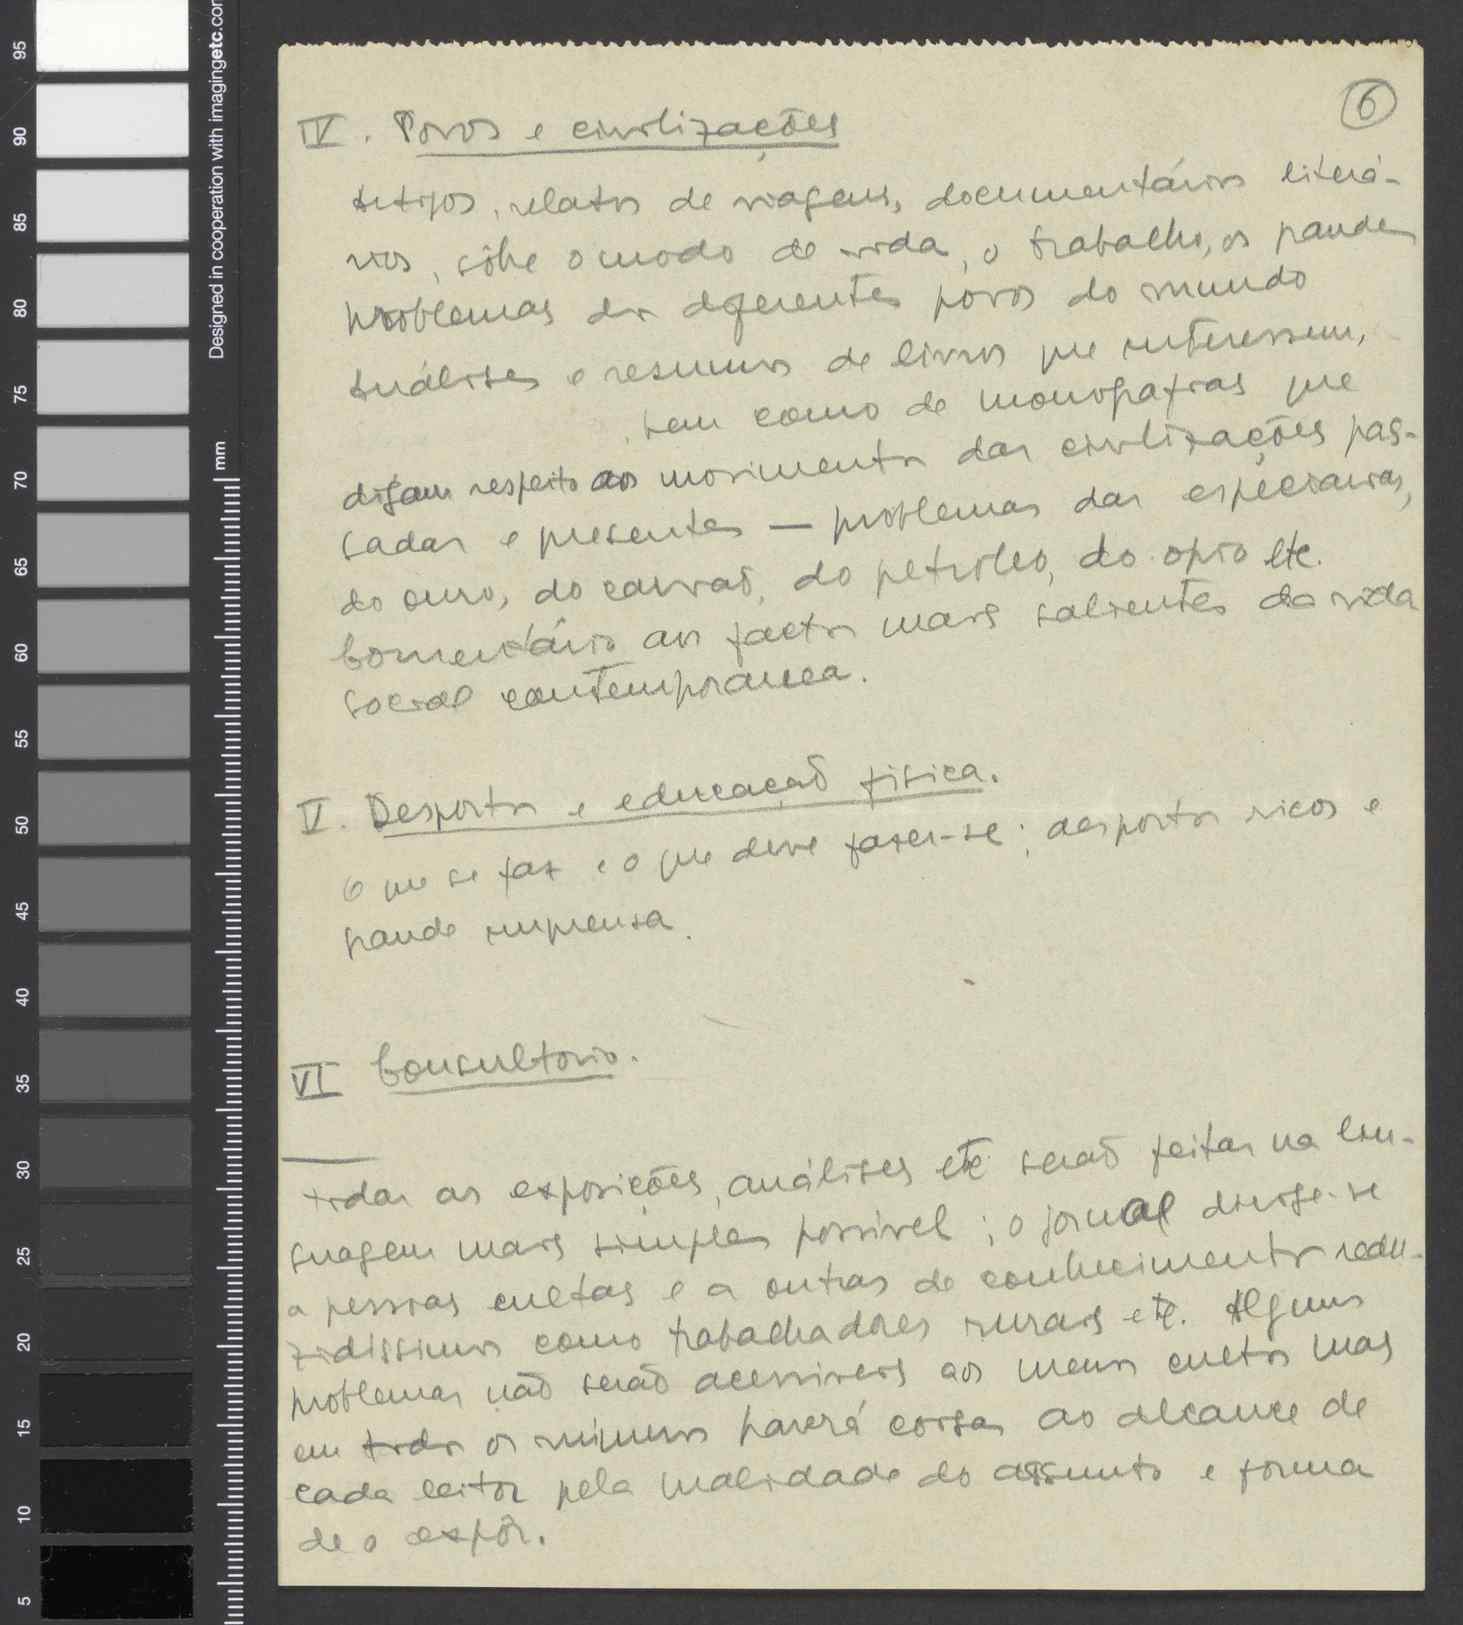 6
IV. Povos e civilizações
Artigos, relatos de viagens, documentários literá-
rios, sôbre o modo de vida, o trabalho, os grandes
problemas dos diferentes povos do mundo
Análises e resumos de livros que interessem,
bem como de monografias que
digam respeito aos movimentos das civilizações pas-
sadas e presentes — problemas das especiarias,
do ouro, do carvão, do petroleo, do opio etc.
Comentário aos factos mais salientes da vida
social contemporanea.
V. Desportos e educação fisica.
O que se faz e o que deve fazer-se; desportos ricos e
grande imprensa.
VI Consultorio.
Todas as exposições, análises etc serão feitas na lin-
guagem mais simples possivel; o jornal dirige-se
a pessoas cultas e a outras de conhecimentos redu-
zidissimos como trabalhadores rurais etc. Alguns
problemas não serão acessiveis aos menos cultos mas
em todos os numeros haverá coisas ao alcance de
cada leitor pela qualidade do assunto e forma
de o expôr.
Designed in cooperation with imagingetc.com
mm
95
90
85
80
75
70
65
60
55
50
45
40
35
30
25
20
15
10
5